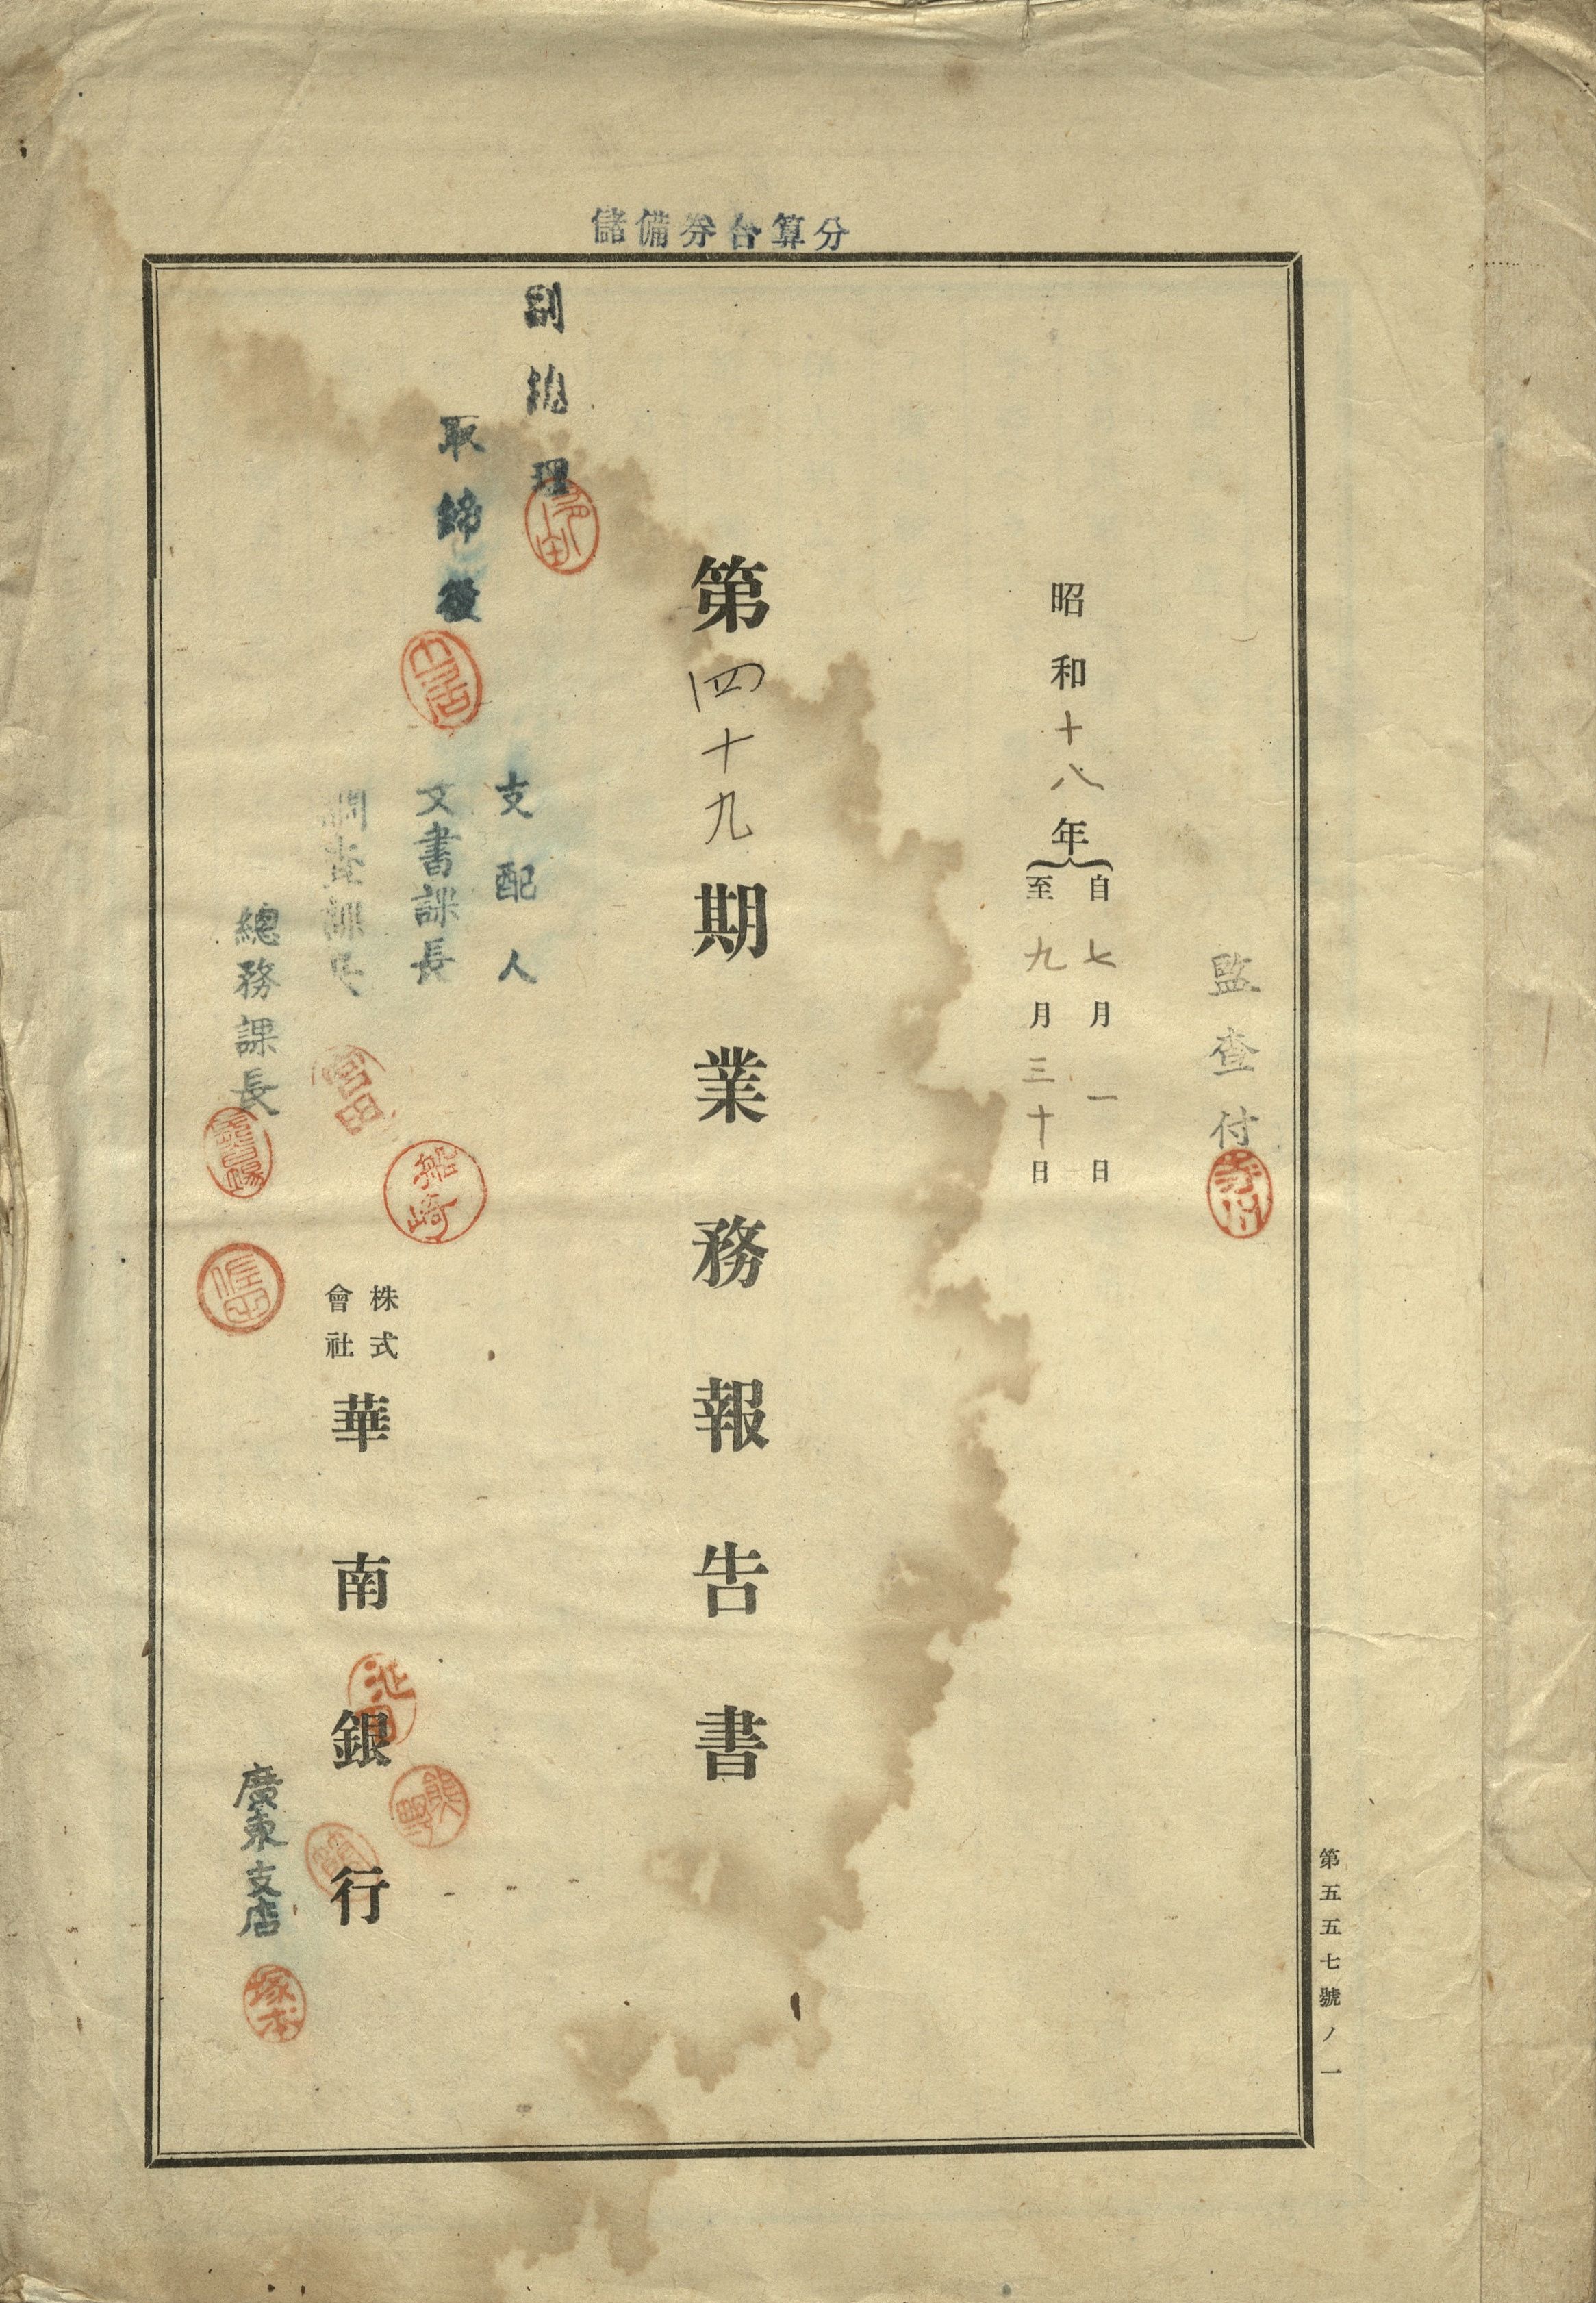 儲備券合算分
監查付
昭和十八年
自七月一日
至九月三十日
第四十九期業務報告書
副總理
取締役
支配人
文書課長
調查課長
總務課長
船崎
株式
會社
華南銀行
廣東支店
塚本
第五五七號ノ一